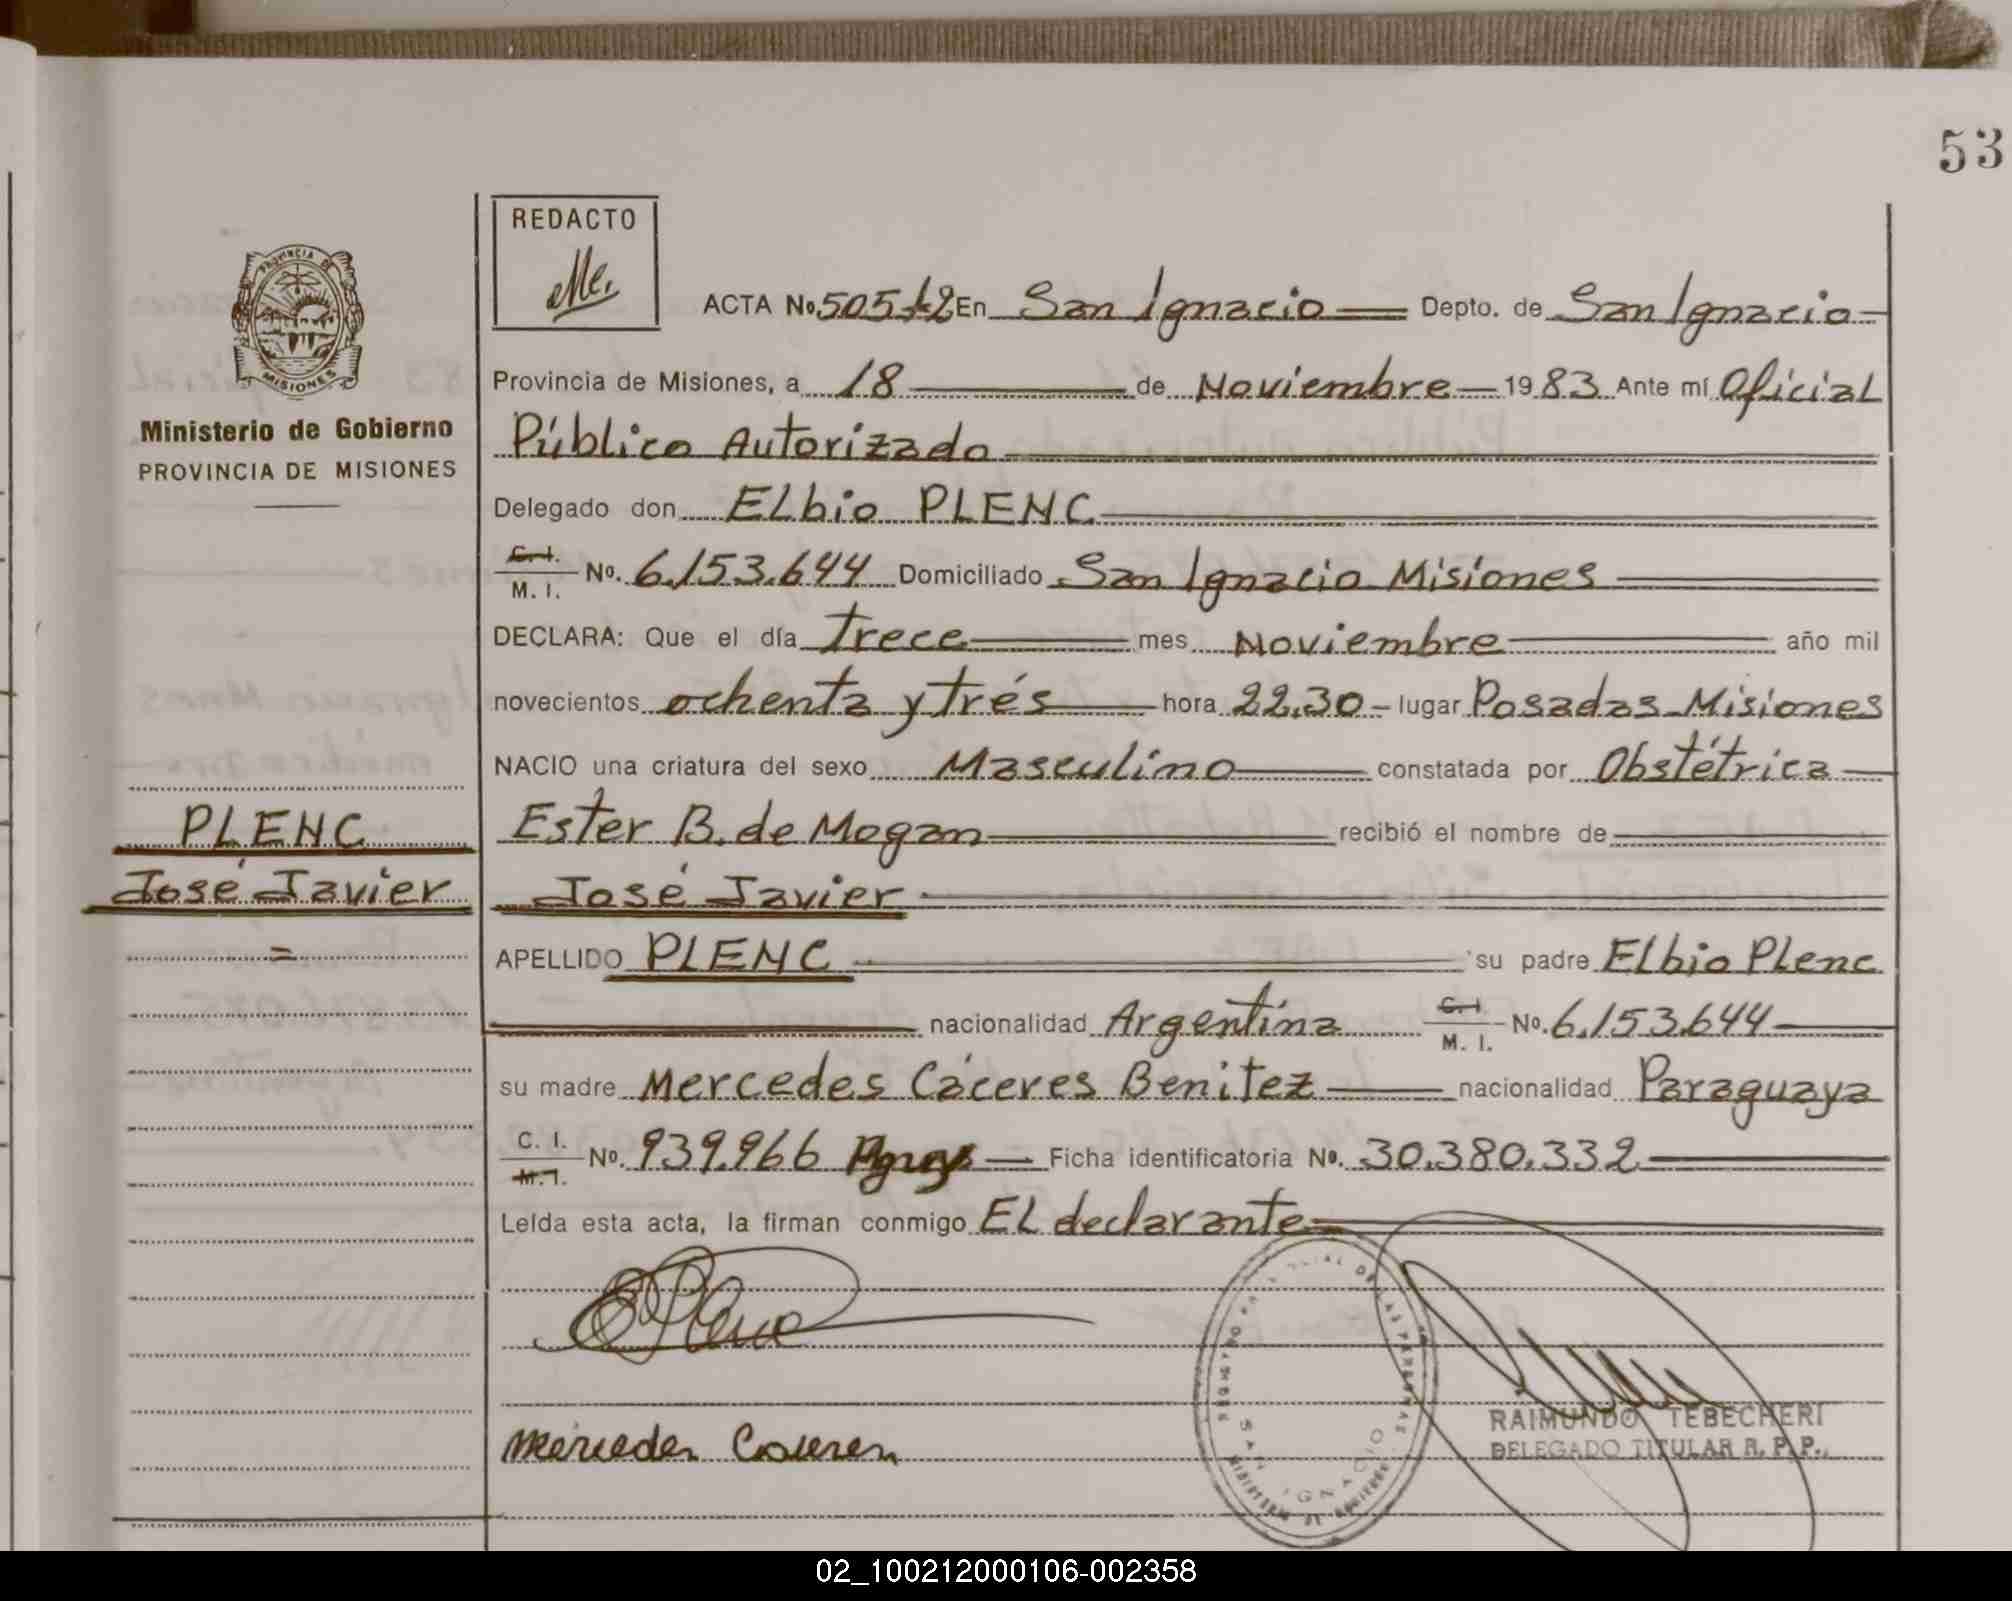 53
REDACTO
PROVINCIA DE
MISIONES
Ministerio de Gobierno
PROVINCIA DE MISIONES
ACTA No. 505 En San Ignacio Depto. de San Ignacio
Provincia de Misiones, a 18 de Noviembre 1983 Ante mí Oficial
Público Autorizado
Delegado don Elbio PLENC
C. I.
M. I. No. 6.153.644 Domiciliado San Ignacio Misiones
DECLARA: Que el día trece mes Noviembre año mil
novecientos ochenta y trés hora 22.30 lugar Posadas Misiones
NACIO una criatura del sexo Masculino constatada por Obstétrica
PLENC
Ester B. de Mogan recibió el nombre de
José Javier
José Javier
=
APELLIDO PLENC su padre Elbio Plenc
nacionalidad Argentina C. I. M. I. No. 6.153.644
su madre Mercedes Cáceres Benitez nacionalidad Paraguaya
C. I.
M. I. No. 939.966 Ficha identificatoria No. 30.380.332
Leída esta acta, la firman conmigo El declarante
EPlenc
Mercedes Caceres
SAN IGNACIO
RAIMUNDO TEBECHERI
DELEGADO TITULAR R. P. P.
02_100212000106-002358